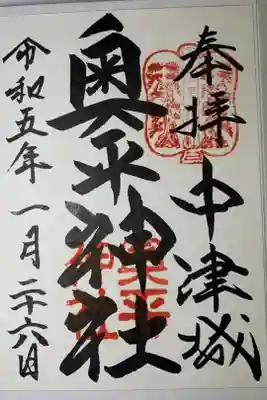 奉拝 中津城
奥平神社
令和五年 一月二十六日